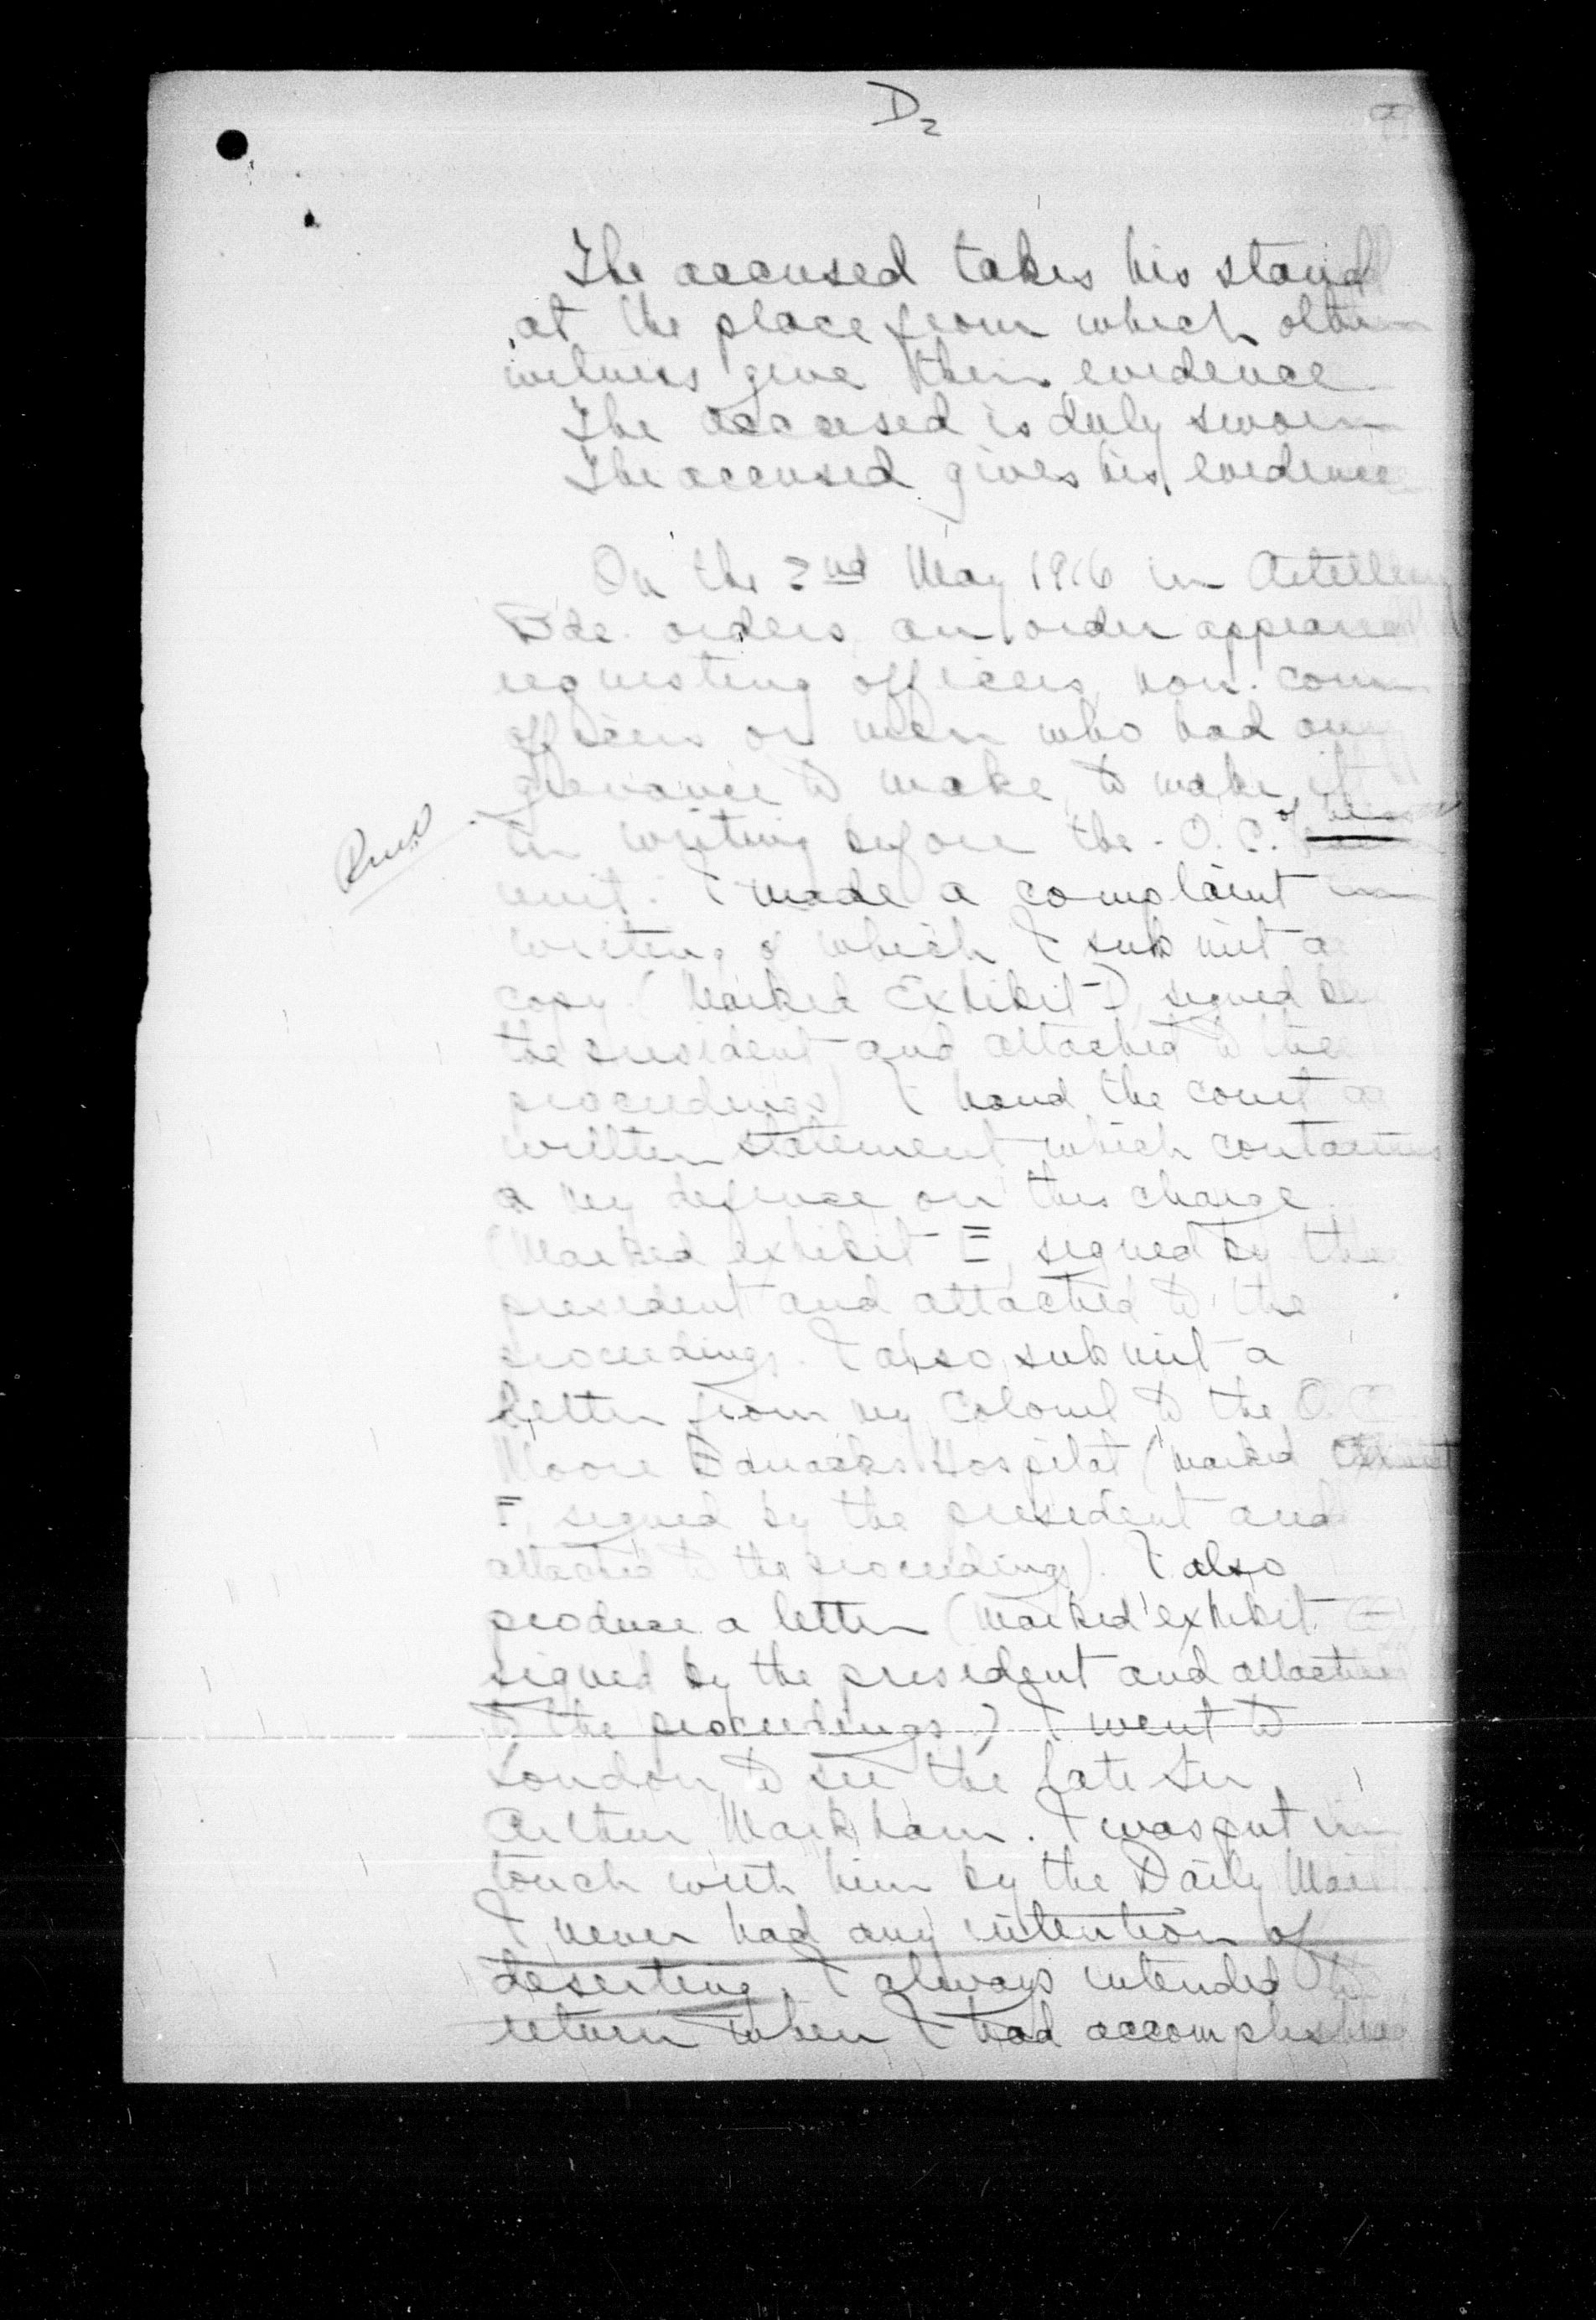 D2
The accused takes his stand
at the place from which other
witness give their evidence
The accused is duly sworn
The accused gives his evidence
On the 2nd May 1916 in Artillery
Bde. orders an order appeared
requesting officers, non. com
officers or men who had any
grievance to make, to make it
in writing before the O.C. of his
unit. I made a complaint in
writing of which I submit a
copy (Marked Exhibit D, signed by
the president and attached to the
proceedings) I hand the court a
written statement which contains
my defence on this charge
(Marked exhibit E, signed by the
president and attached to the
proceedings. I also submit a
letter from my Colonel to the O.C.
Moore Barracks Hospital (marked Exhibit
F, signed by the president and
attached to the proceedings). I also
produce a letter (Marked exhibit
signed by the president and attached
to the proceedings) I went to
London to see the late Sir
Arthur Markham. I was put in
touch with him by the Daily Mail
I never had any intention of
deserting. I always intended to
return when I had accomplished